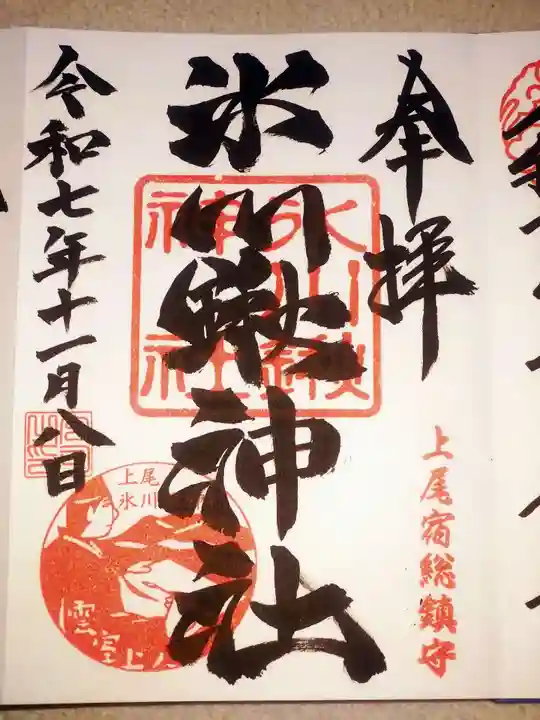 奉拝
上尾宿総鎮守
氷川鍬神社
氷川鍬
神社
令和七年十一月八日
上尾
氷川
雲室上人